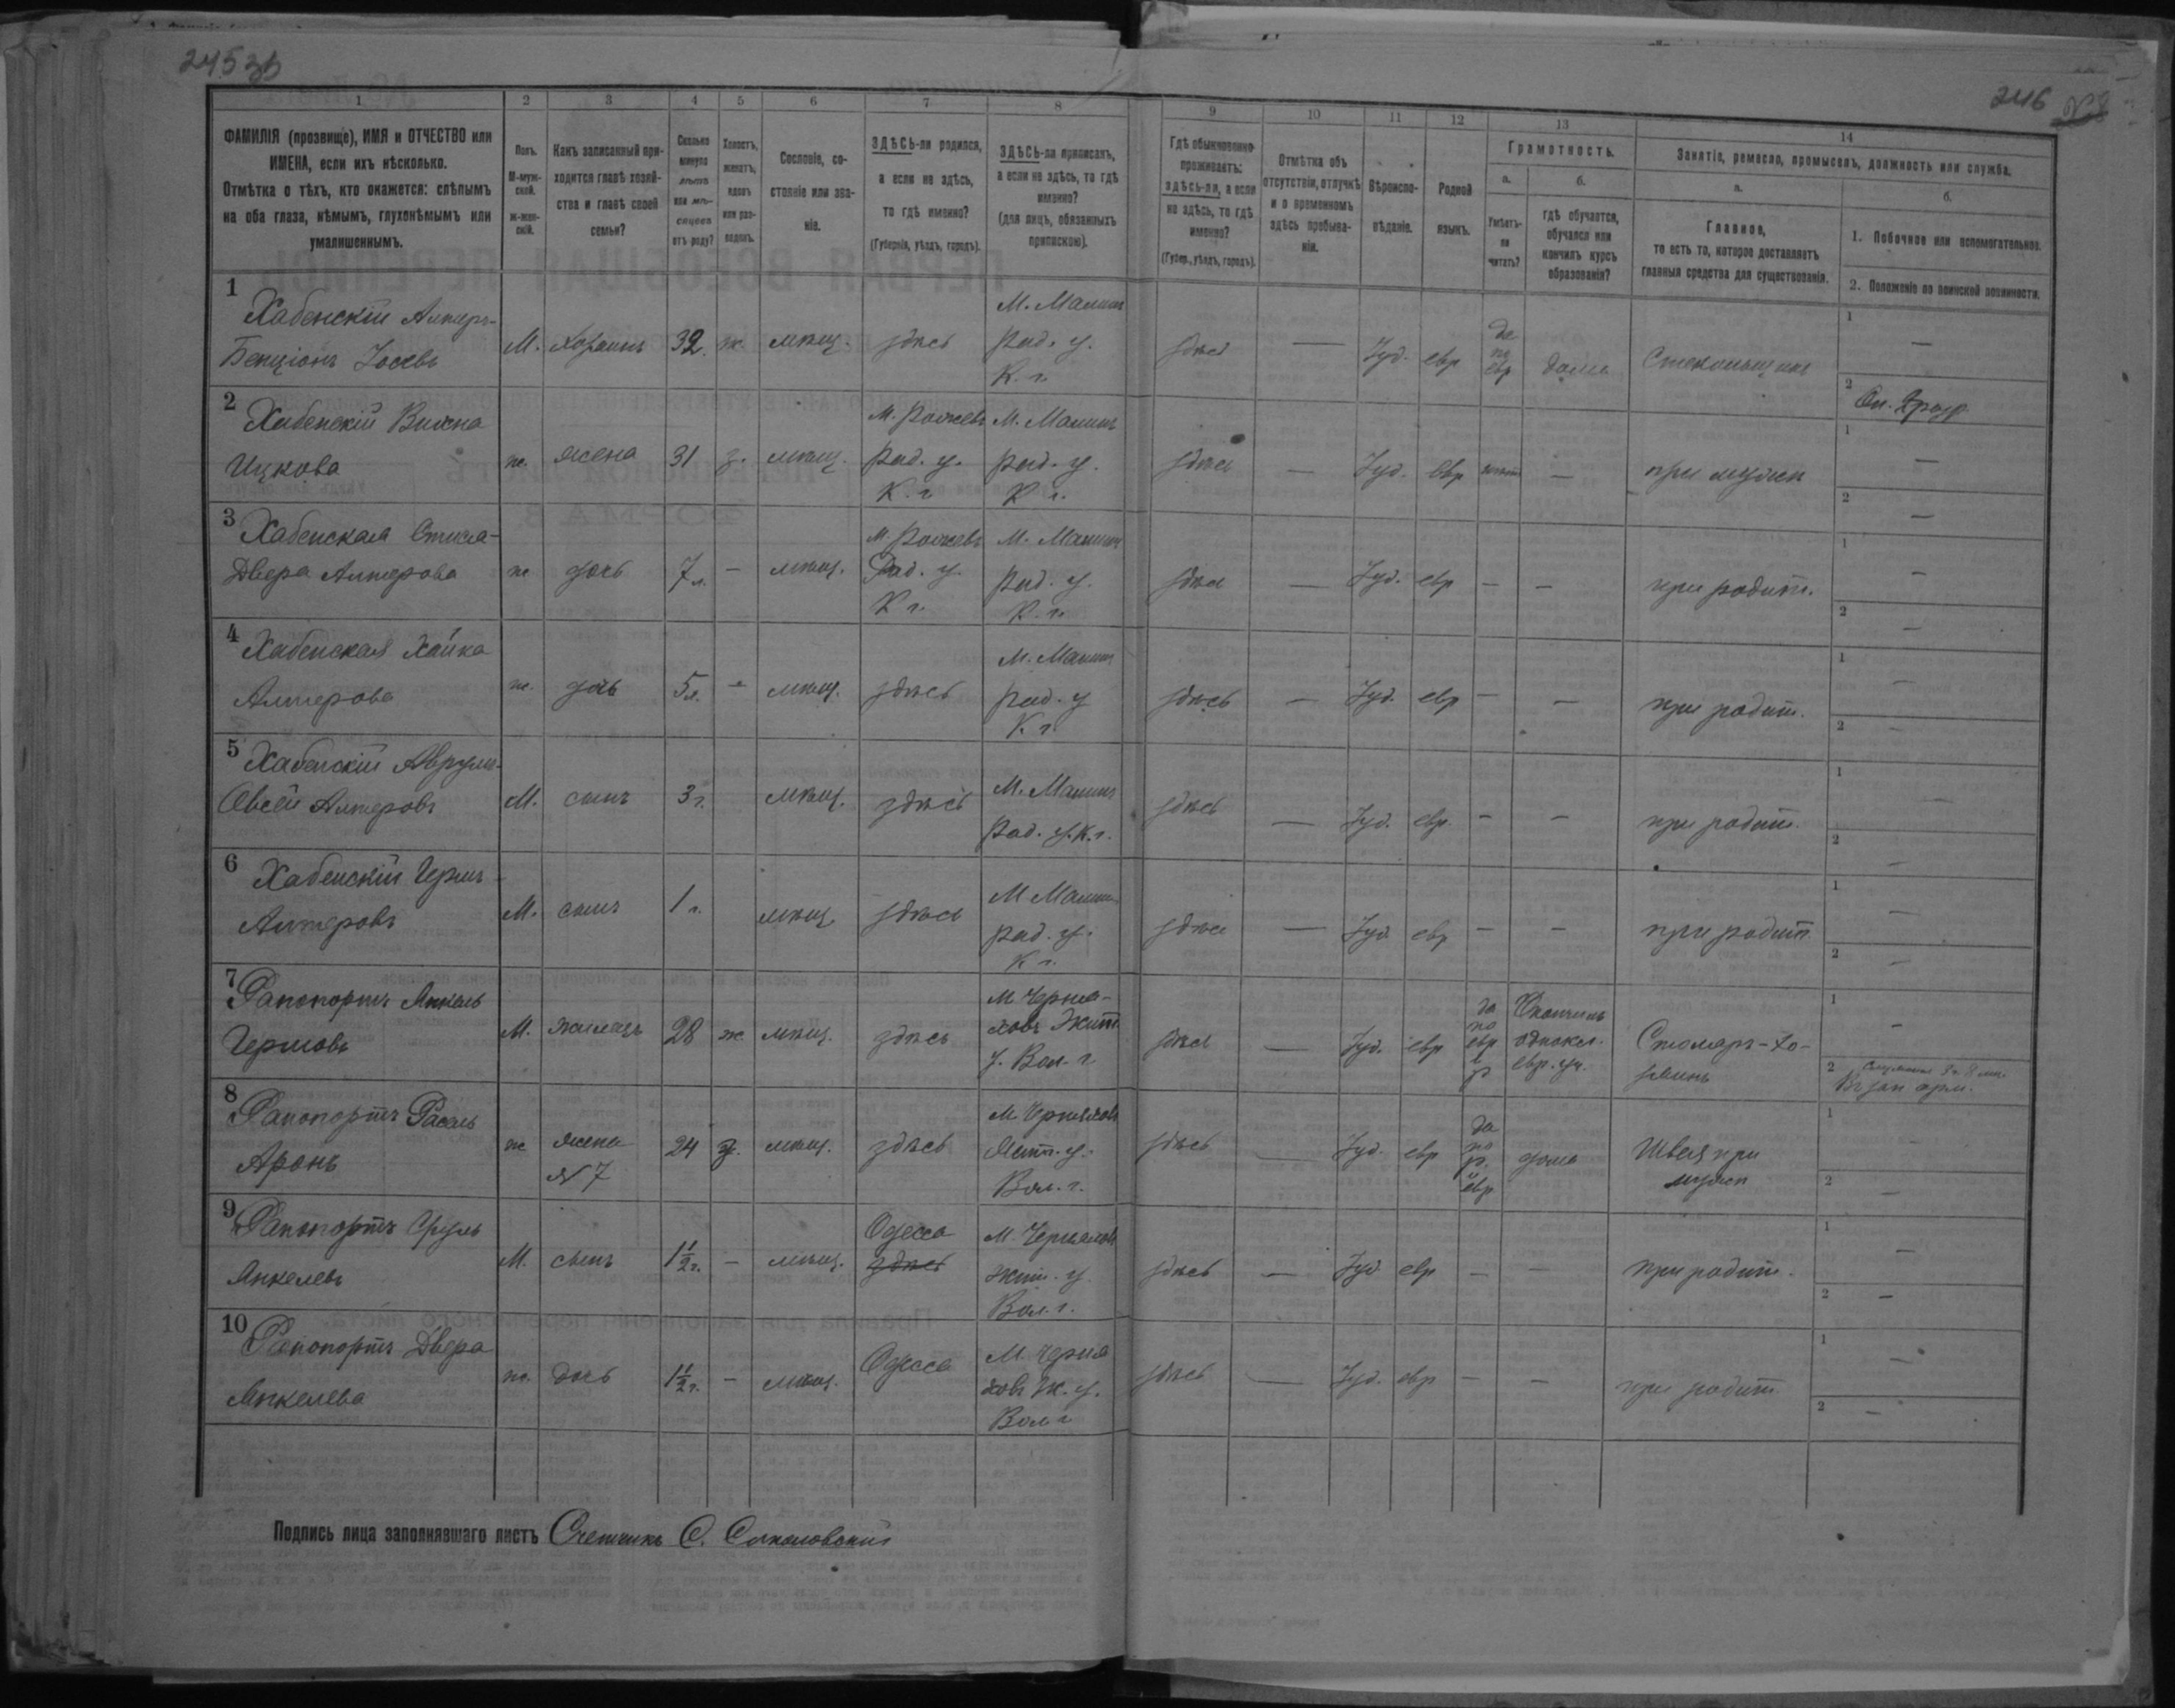 245 зв
246
1 2 3 4 5 6 7 8 9 10 11 12 13 14
ФАМИЛІЯ (прозвище), ИМЯ и ОТЧЕСТВО или
ИМЕНА, если ихъ нѣсколько.
Отмѣтка о тѣхъ, кто окажется: слѣпымъ
на оба глаза, нѣмымъ, глухонѣмымъ или
умалишеннымъ.
Полъ.
М-муж-
ской.
ж-жен-
скій.
Какъ записанный при-
ходится главѣ хозяй-
ства и главѣ своей
семьи?
Сколько
минуло
лѣтъ
или мѣ-
сяцевъ
отъ роду?
Холостъ,
женатъ,
вдовъ
или раз-
веденъ.
Сословіе, со-
стояніе или зва-
ніе.
ЗДѢСЬ-ли родился,
а если не здѣсь,
то гдѣ именно?
(Губернія, уѣздъ, городъ).
ЗДѢСЬ-ли приписанъ,
а если не здѣсь, то гдѣ
именно?
(для лицъ, обязанныхъ
припискою).
Гдѣ обыкновенно
проживаетъ:
здѣсь-ли, а если
не здѣсь, то гдѣ
именно?
(Губер., уѣздъ, городъ).
Отмѣтка объ
отсутствіи, отлучкѣ
и о временномъ
здѣсь пребыва-
ніи.
Вѣроиспо-
вѣданіе.
Родной
языкъ.
Грамотность.
а.
Умѣетъ-
ли
читать?
б.
гдѣ обучается,
обучался или
кончилъ курсъ
образованія?
Занятіе, ремесло, промыселъ, должность или служба.
а.
Главное,
то есть то, которое доставляетъ
главныя средства для существованія.
б.
1. Побочное или вспомогательное.
2. Положеніе по воинской повинности.
1 Хабенскій Алтеръ-
Бенціонъ Іосевъ
М. хозяинъ 32. ж. мѣщ. здѣсь
М. Малинъ
Рад. у.
К. г.
здѣсь — Іуд. евр
да
по
евр
дома Стекольщикъ
1 —
2
2 Хабенскій
Ицкова
ж. жена 31 з. мѣщ.
Рад. у.
К. г
М. Малинъ
Рад. у.
К г.
здѣсь — Іуд. евр — при мужѣ
1 —
2 —
3 Хабенская
Двера Алтерова
ж дочь 7 л. — мѣщ.
Рад. у.
К г.
М. Малинъ
Рад. у.
К. г.
здѣсь — Іуд. евр — — при родит.
1 —
2 —
4 Хабенская Хайка
Алтерова
ж. дочь 5 л. — мѣщ. здѣсь
М. Малинъ
Рад. у
К г.
здѣсь — Іуд. евр — — при родит.
1 —
2 —
5 Хабенскій Аврумъ-
Овсей Алтеровъ
М. сынъ 3 г. мѣщ. здѣсь
М. Малинъ
Рад. у. К. г.
здѣсь — Іуд. евр. — — при родит.
1 —
2 —
6 Хабенскій Гершъ
Алтеровъ
М. сынъ 1 г. мѣщ. здѣсь
М Малинъ
Рад. у.
К г.
здѣсь — Іуд. евр — — при родит
1 —
2 —
7 Рапопортъ Янкель
Гершовъ
М. жилецъ 28 ж мѣщ. здѣсь
М Черня-
ховъ Жит.
у. Вол. г
здѣсь — Іуд. евр
да
по
евр
и
р
Окончилъ
однокл.
евр. уч.
Столяръ-хо-
зяинъ
1 —
2
Въ зап арм.
8 Рапопортъ Расель
Аронъ
ж жена
N 7
24 з. мѣщ. здѣсь
М. Черняховъ
Жит. у.
Вол. г.
здѣсь — Іуд. евр
да
по
р.
и
евр
дома
Швея при
мужѣ
1 —
2 —
9 Рапопортъ Сруль
Янкелевъ
М. сынъ 1½ г. — мѣщ.
Одесса
здѣсь
М. Черняховъ
Жит. у.
Вол. г.
здѣсь — Іуд евр — — при родит.
1 —
2 —
10 Рапопортъ Двера
Янкелева
ж. дочь 1½ г. — мѣщ. Одесса
М. Черня
ховъ Ж. у.
Вол г
здѣсь — Іуд. евр — — при родит
1 —
2 —
Подпись лица заполнявшаго листъ Счетчикъ С. Соколовскій